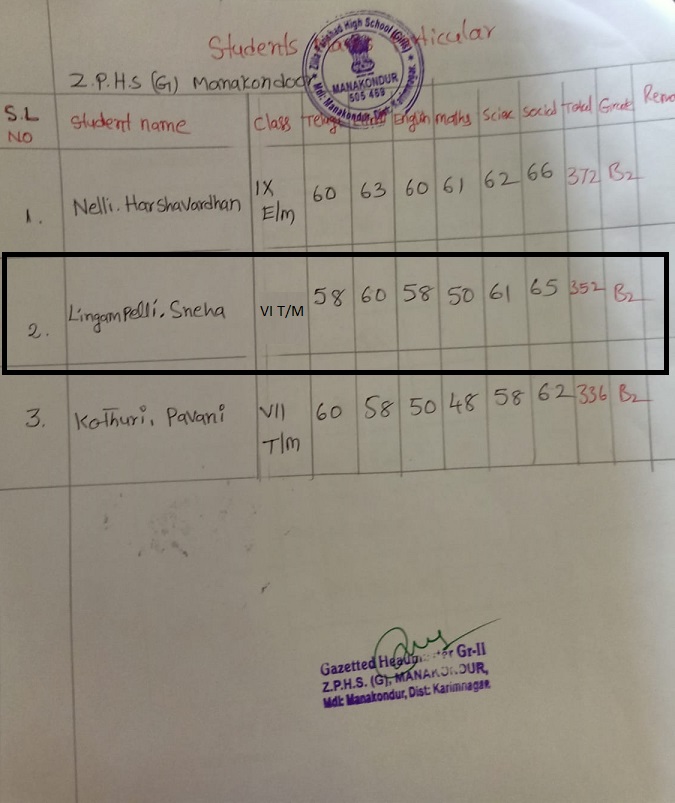 Students Marks Particular
Z.P.H.S (G) Manakondoor
Zilla Parishad High School (Girls)
MANAKONDUR
505 469
Mdl: Manakondur, Dist: Karimnagar.
S.L NO Student name Class Telugu Hindi English maths Science Social Total Grade
1. Nelli. Harshavardhan IX E/m 60 63 60 61 62 66 372 B2
2. Lingampelli. Sneha VI T/M 58 60 58 50 61 65 352 B2
3. Kothuri. Pavani VII T/m 60 58 50 48 58 62 336 B2
Gazetted Headmaster Gr-II
Z.P.H.S. (G), MANAKONDUR,
Mdl: Manakondur, Dist: Karimnagar